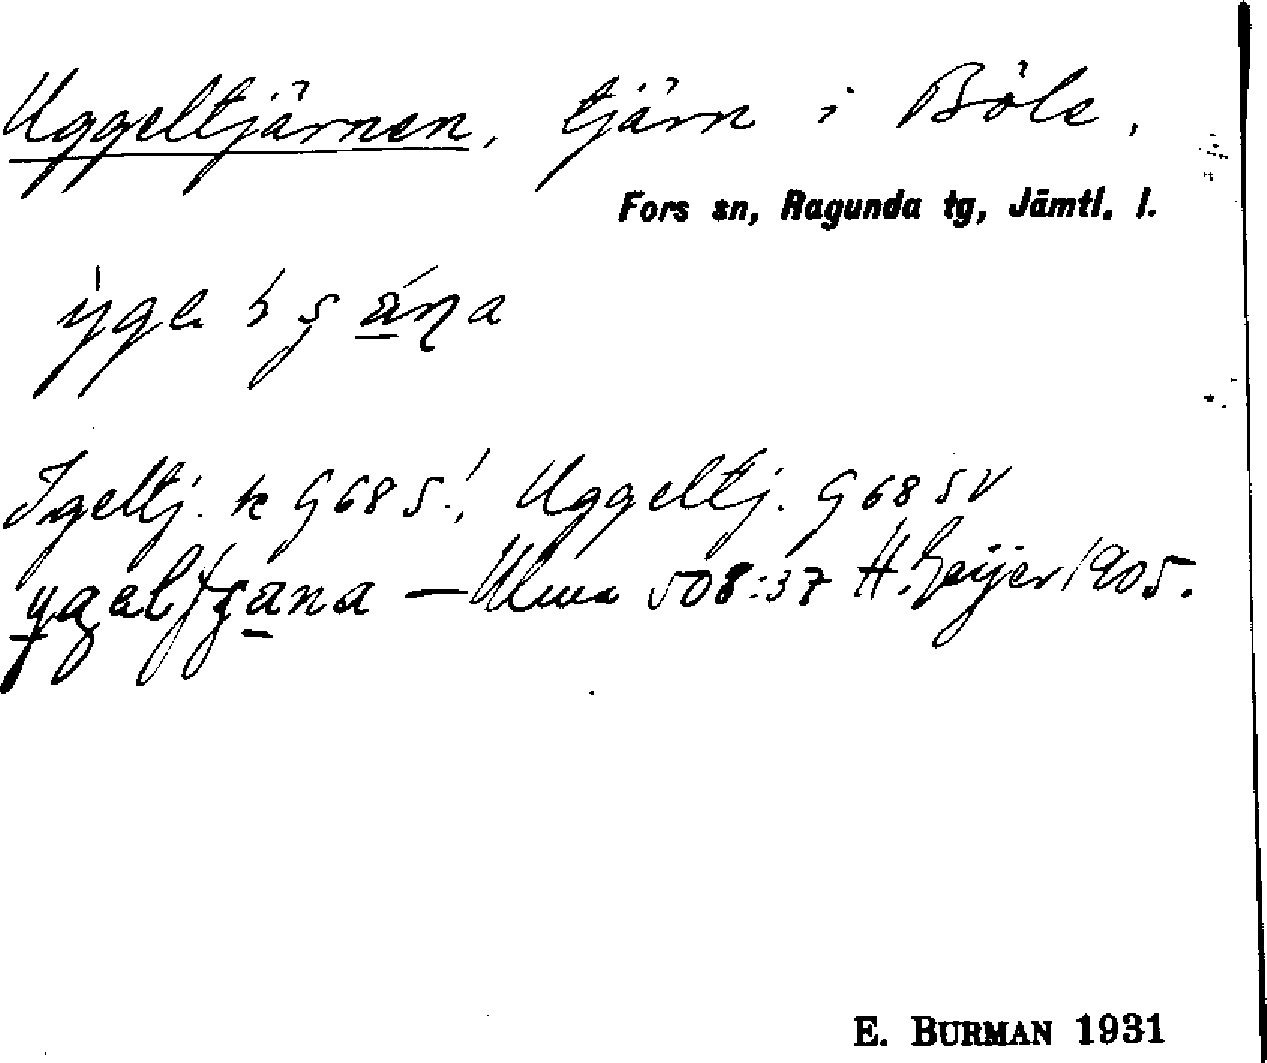 Uggeltjärnen, tjärn i Böle,
Fors sn, Ragunda tg, Jämtl. l.
Igeltj. k G68 S.! Uggeltj. G 68 SV
— Uluma 508:37 H. Geijer 1905.
E. BURMAN 1931